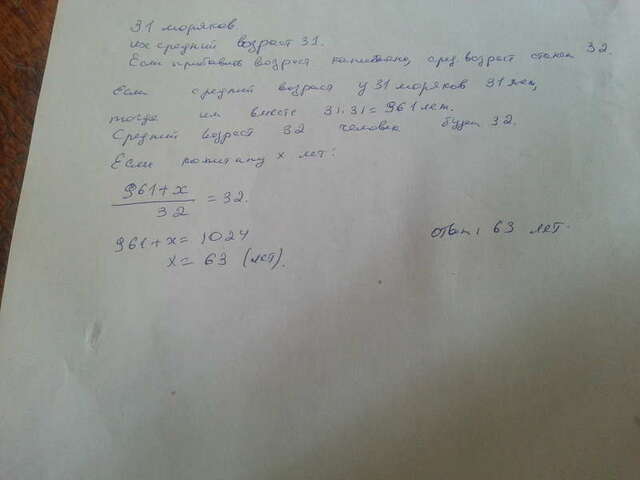 31 моряков
их средний возраст 31.
Если прибавить возраст капитана, сред. возраст станет 32.
Если средний возраст у 31 моряков 31 лет,
тогда им вместе 31·31=961 лет.
Средний возраст 32 человек будет 32.
Если капитану x лет:
961+x
32
=32.
961+x=1024
x=63 (лет).
ответ: 63 лет.